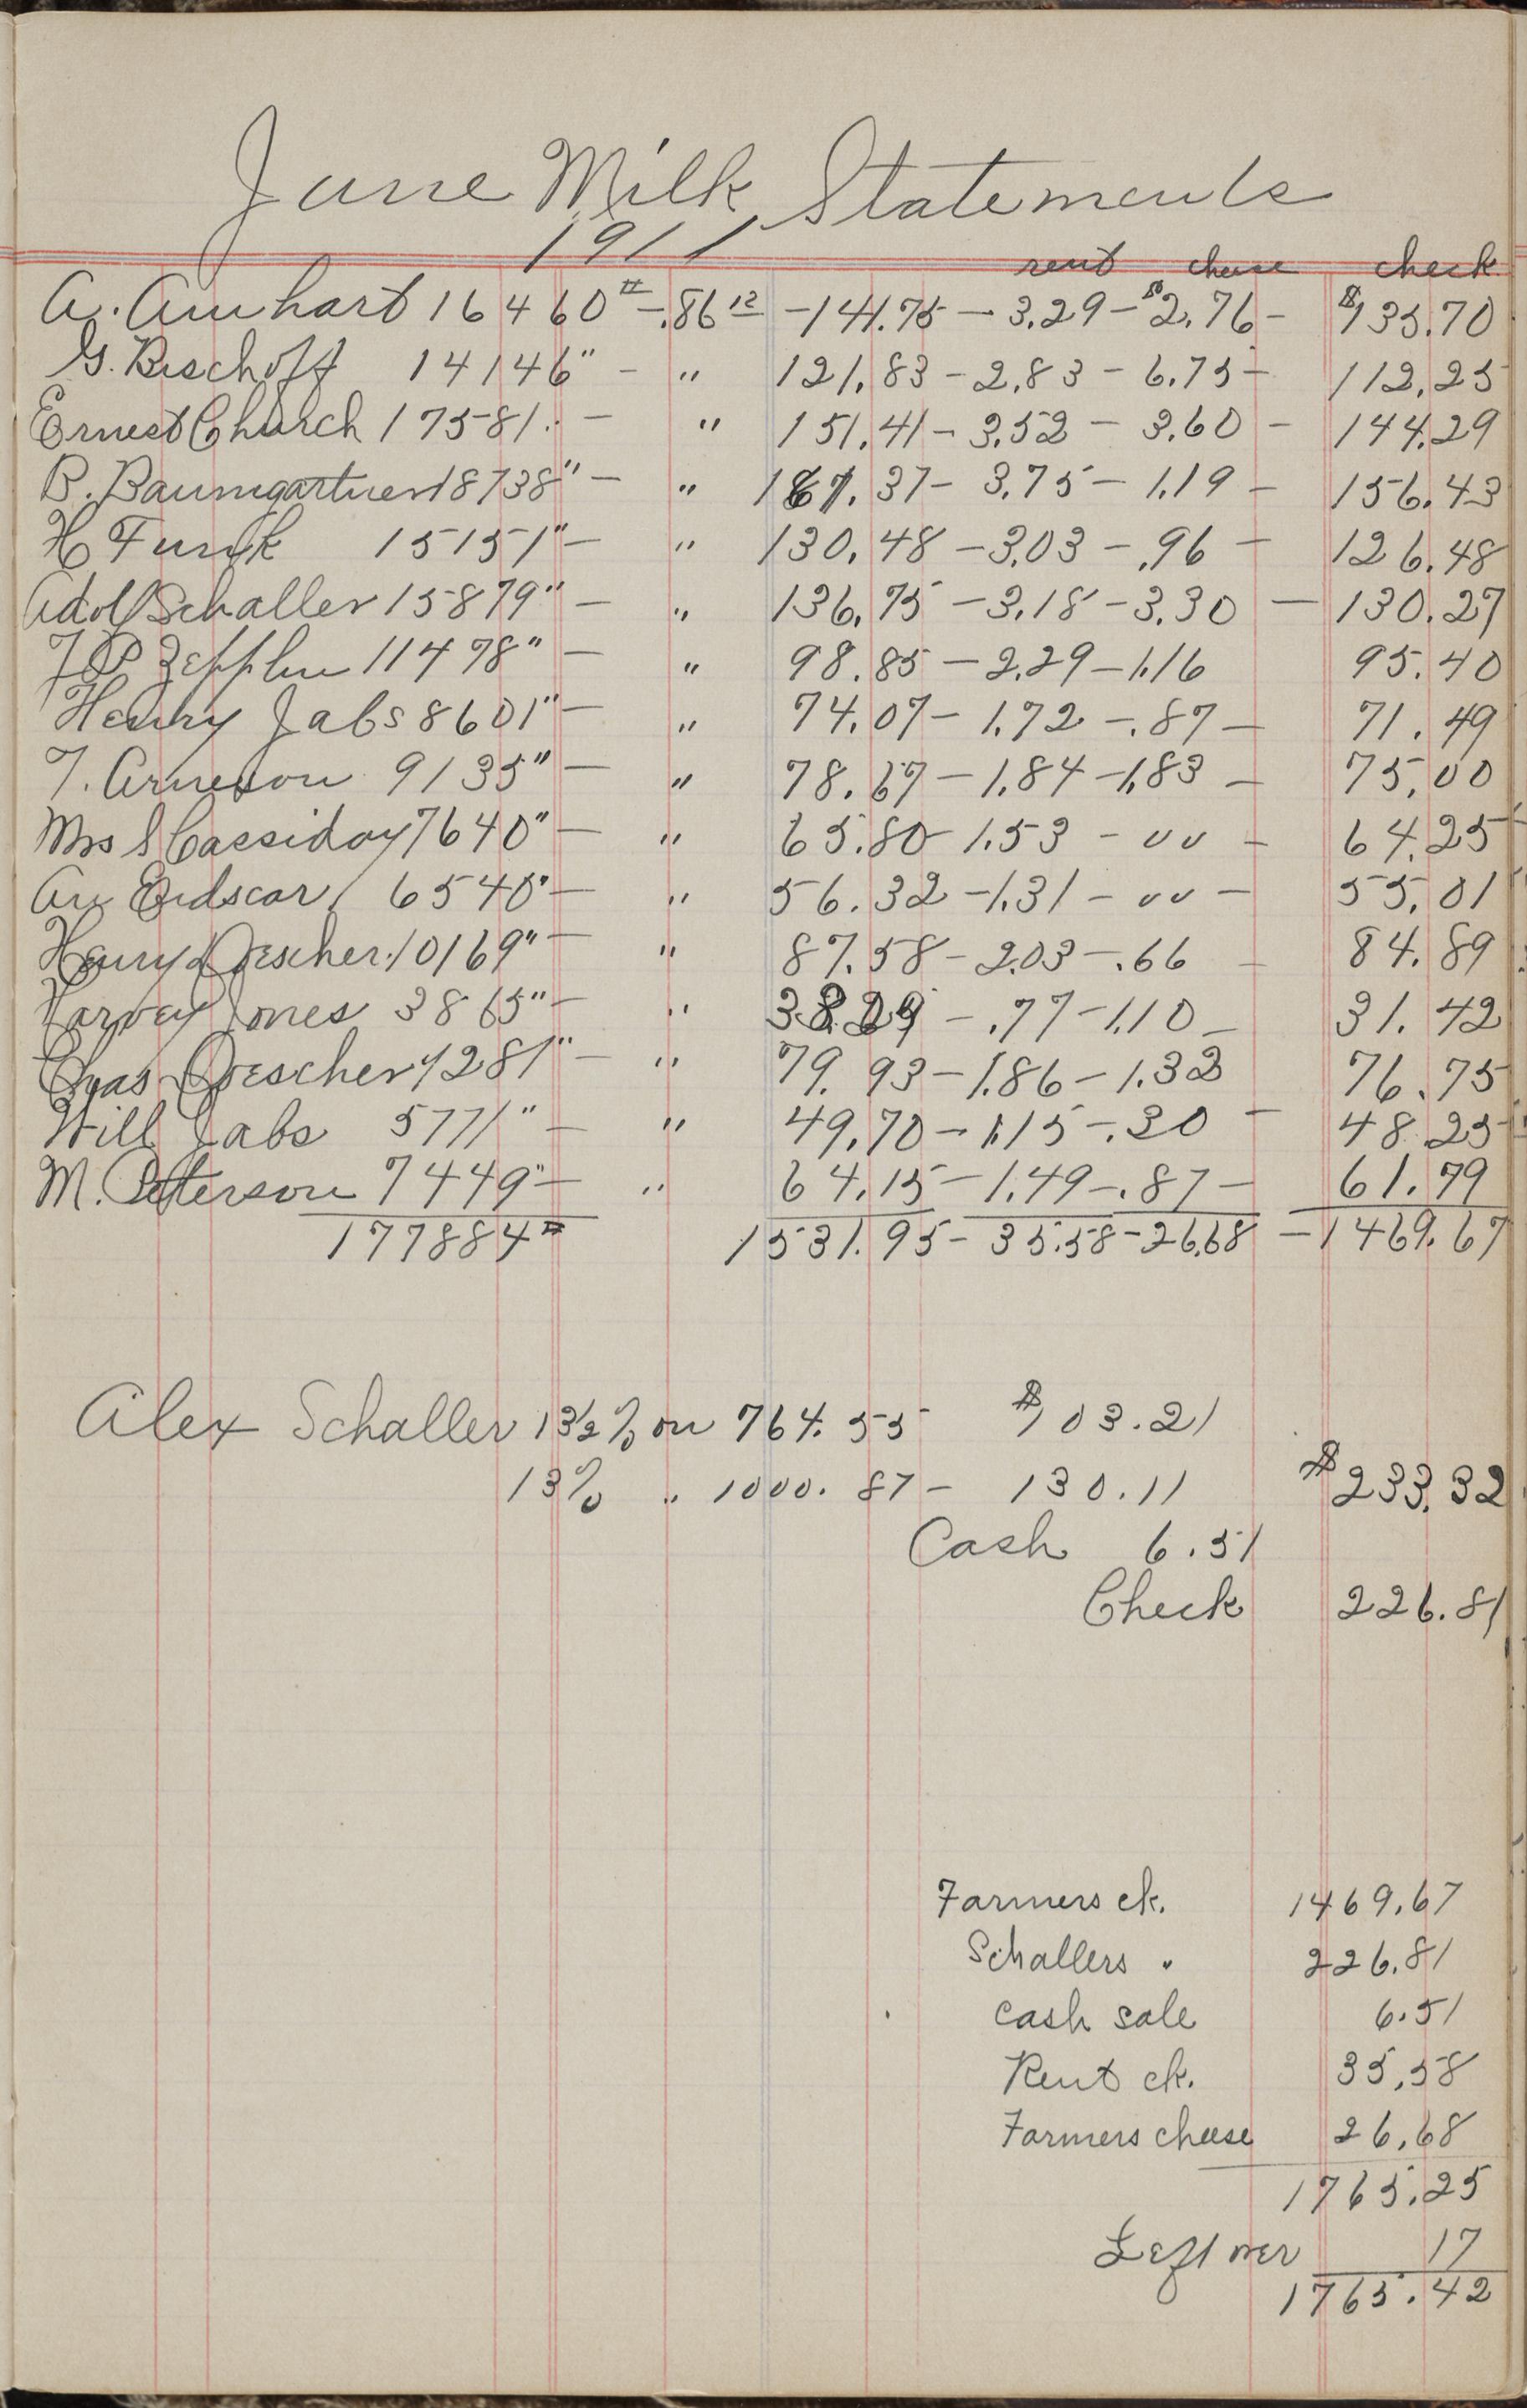 June Milk Statements
1911
rent cheese check
A. Amhart 16460# - .86 12 - 141.75 - 3.29 - $2.76 - $135.70
G. Bischoff 14146" - " 121.83 - 2.83 - 6.75 - 112.25
Ernest Church 17581 - " 151.41 - 3.52 - 3.60 - 144.29
B. Baumgartner 18738" - " 161.37 - 3.75 - 1.19 - 156.43
H Funk 15151" - " 130.48 - 3.03 - .96 - 126.48
Adolf Schaller 15879" - " 136.75 - 3.18 - 3.30 - 130.27
J P Zepplin 11478" - " 98.85 - 2.29 - 1.16 95.40
Henry Jabs 8601" - " 74.07 - 1.72 - .87 - 71.49
T. Arneson 9135" - " 78.67 - 1.84 - 1.83 - 75.00
Mrs S Cassiday 7640" - " 65.80 - 1.53 - 00 - 64.25
6540" - " 56.32 - 1.31 - 00 - 55.01
Henry Oescher 10169" - " 87.58 - 2.03 - .66 - 84.89
Harvey Jones 3865" - " 33.29 - .77 - 1.10 - 31.42
Chas Oescher 9281" - " 79.93 - 1.86 - 1.32 76.75
Will Jabs 5771" - " 49.70 - 1.15 - .30 - 48.25
M. Petterson 7449" - " 64.15 - 1.49 - .87 - 61.79
177884# 1531.95 - 35.58 - 26.68 - 1469.67
Alex Schaller 13½% on 764.55 $103.21
13% " 1000.87 - 130.11 $233.32
Cash 6.51
Check 226.81
Farmers ck. 1469.67
Schallers " 226.81
Cash sale 6.51
Rent ck. 35.58
Farmers cheese 26.68
1765.25
Left over 17
1765.42